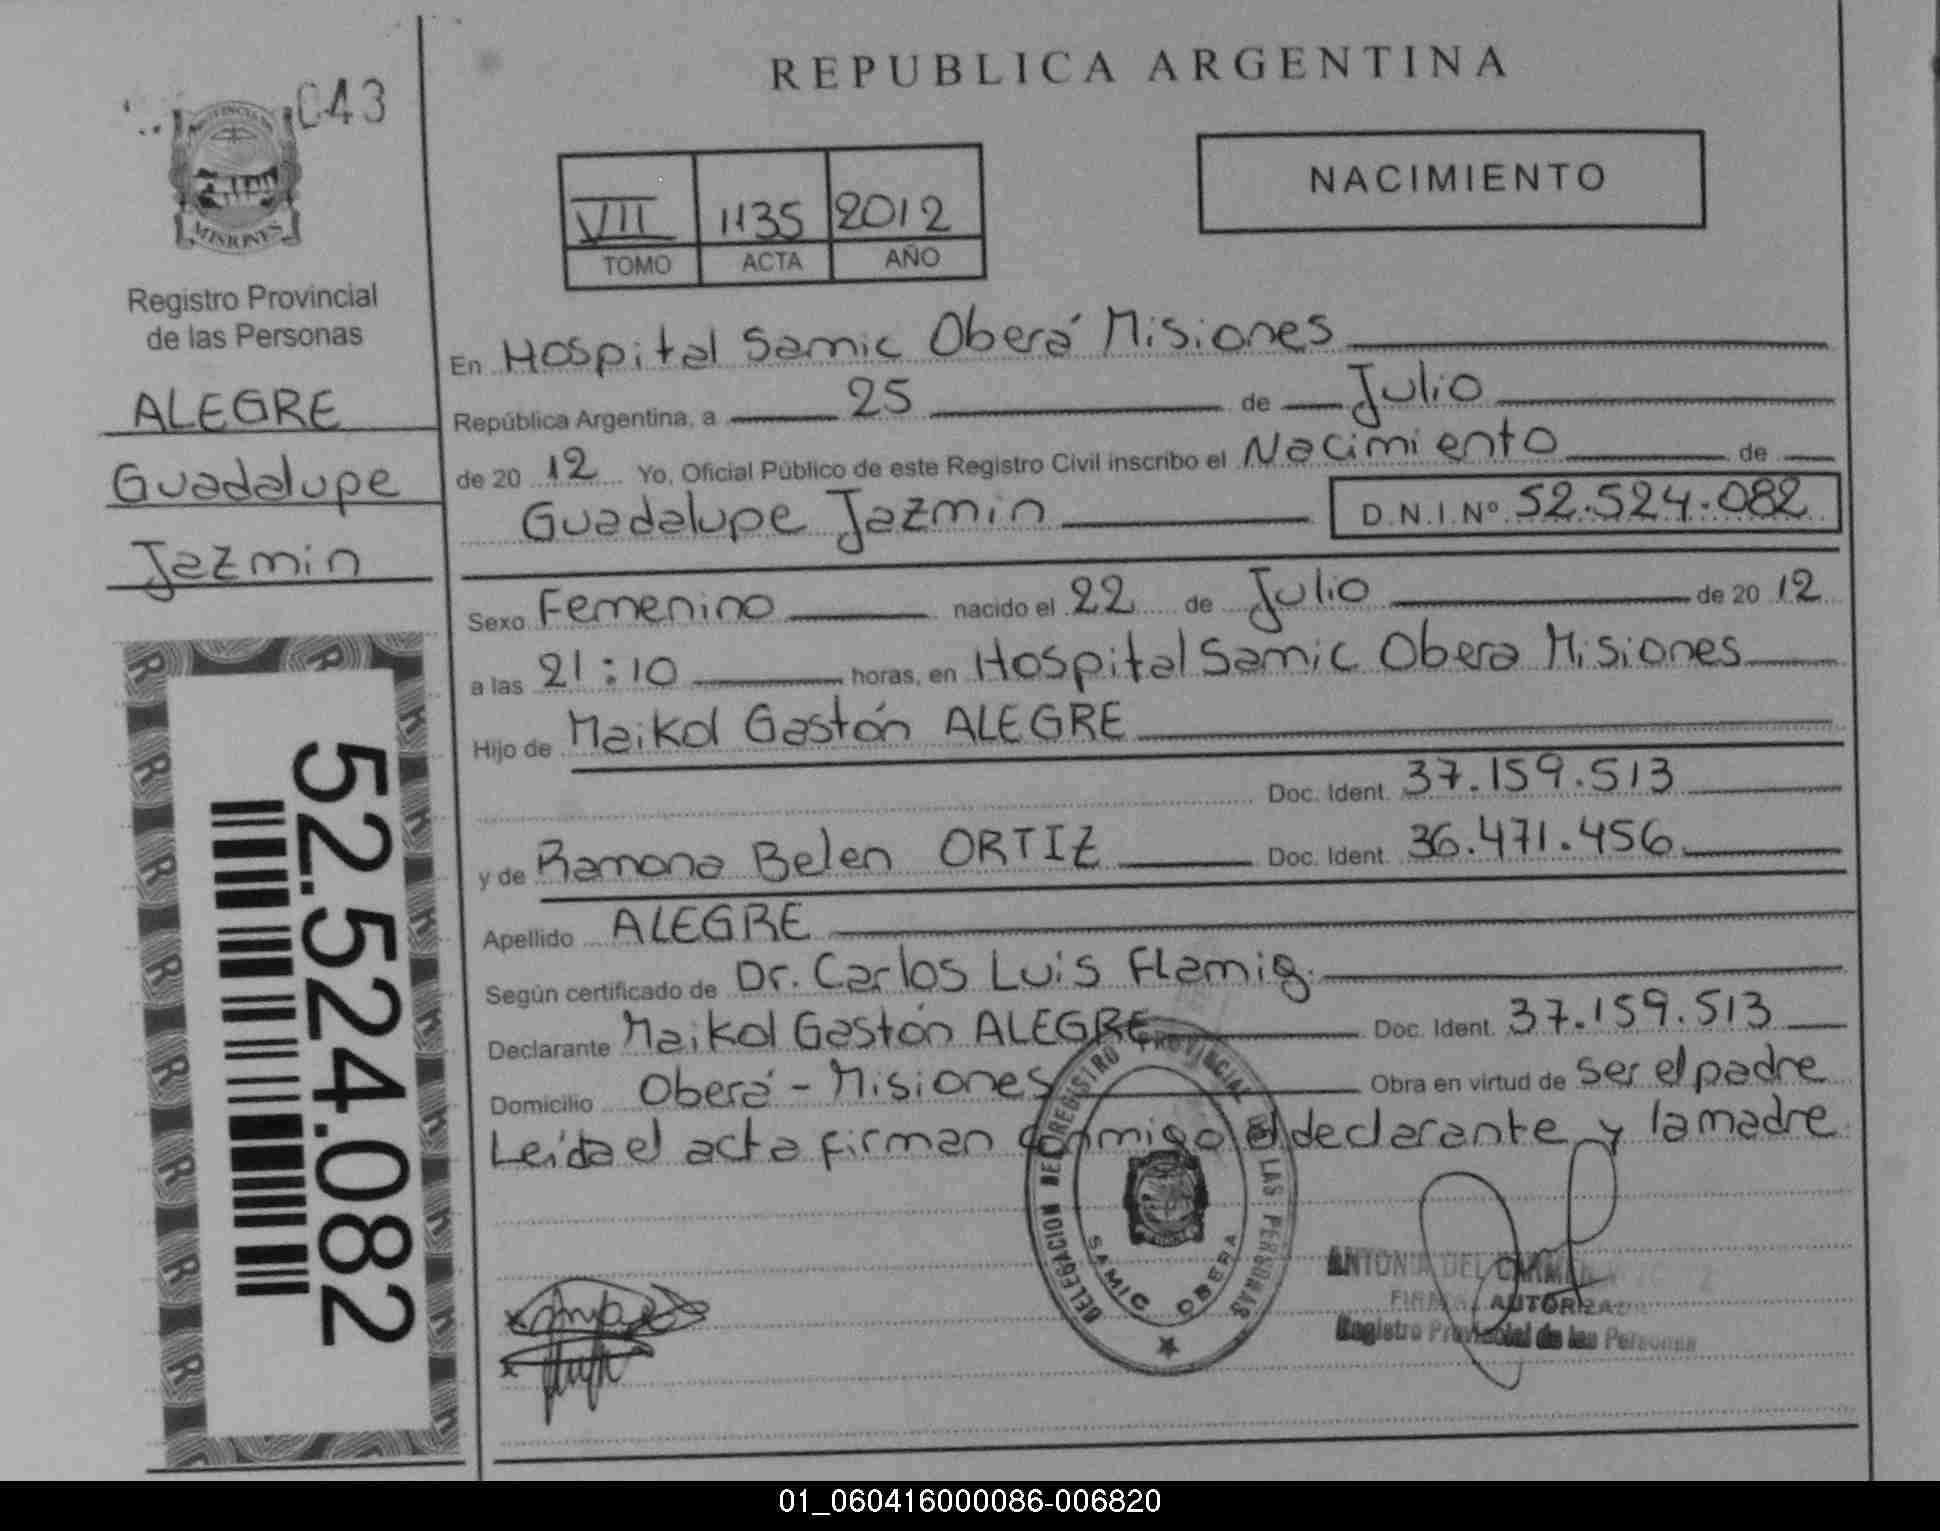 043
PROVINCIA DE
MISIONES
Registro Provincial
de las Personas
ALEGRE
Guadalupe
Jazmin
52.524.082
REPUBLICA ARGENTINA
VII 1135 2012
TOMO ACTA AÑO
NACIMIENTO
En Hospital Samic Oberá Misiones
República Argentina, a 25 de Julio
de 20 12 Yo, Oficial Público de este Registro Civil inscribo el Nacimiento de
Guadalupe Jazmin D.N.I.Nº 52.524.082
Sexo Femenino nacido el 22 de Julio de 20 12
a las 21:10 horas, en Hospital Samic Obera Misiones
Hijo de Maikol Gastón ALEGRE
Doc. Ident. 37.159.513
y de Ramona Belen ORTIZ Doc. Ident. 36.471.456
Apellido ALEGRE
Según certificado de Dr. Carlos Luis Flamig.
Declarante Maikol Gastón ALEGRE Doc. Ident. 37.159.513
Domicilio Oberá - Misiones Obra en virtud de ser el padre
Leída el acta firman conmigo el declarante y la madre
DELEGACION DEL REGISTRO PROVINCIAL DE LAS PERSONAS
SAMIC OBERA
ANTONIA DEL CARMEN
FIRMA AUTORIZADA
Registro Provincial de las Personas
01_060416000086-006820